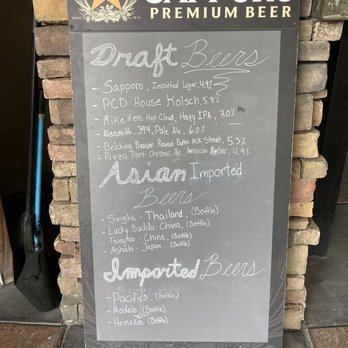 PREMIUM BEER
Draft Beers
- Sapporo, Imported Lager, 4.9%
- PCD House Kolsch, 5.8%
- Mike Hess Hop Cloud, Hazy IPA, 7.0%
- Alesmith, 394, Pale Ale, 6.0%
- Belching Beaver Peanut Butter Milk Stout, 5.3%
- Pizza Port Chronic Ale, American Amber, 4.9%
Asian Imported
Beers
- Singha - Thailand, (Bottle)
- Lucky Budda - China, (Bottle)
- Tsingtao - China, (Bottle)
- Asahi - Japan, (Bottle)
Imported Beers
- Pacifico, (Bottle)
- Modelo, (Bottle)
- Heineken (Bottle)